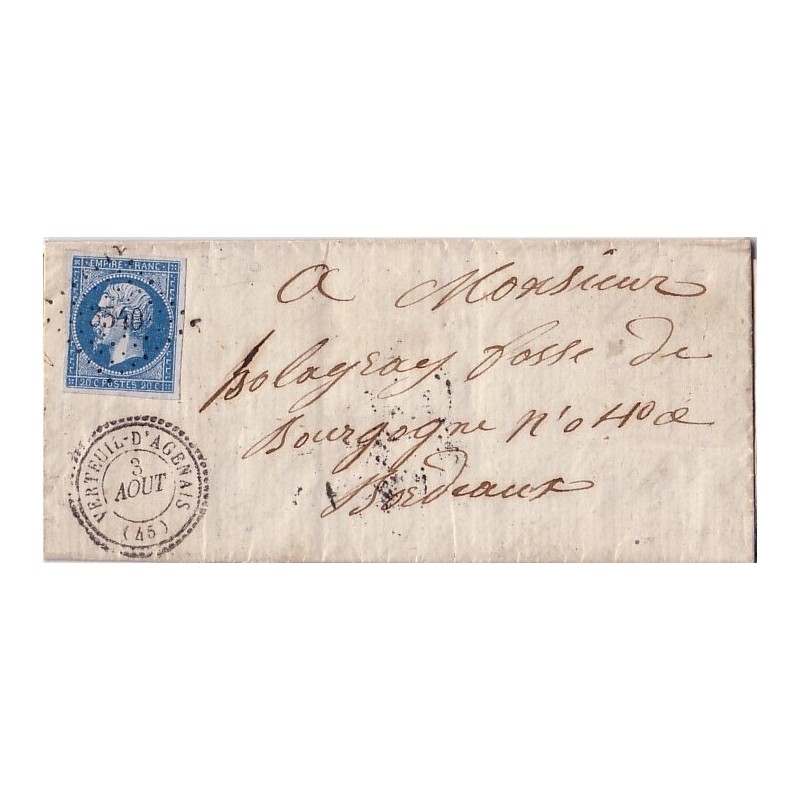 EMPIRE FRANC
3540
20 C POSTES 20 C
VERTEUIL-D'AGENAIS
3
AOUT
(45)
a Monsieur
fosse de
Bourgogne n'o 40 a
Bordeaux